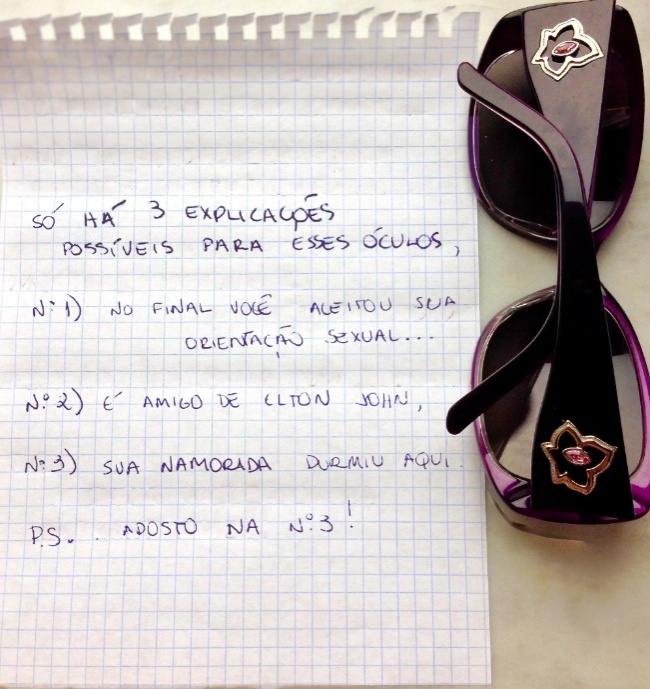 SÓ HÁ 3 EXPLICAÇÕES
POSSÍVEIS PARA ESSES ÓCULOS,
Nº1) NO FINAL VOCÊ ACEITOU SUA
ORIENTAÇÃO SEXUAL...
Nº2) É AMIGO DE ELTON JOHN,
Nº3) SUA NAMORADA DURMIU AQUI.
P.S.. APOSTO NA Nº3!